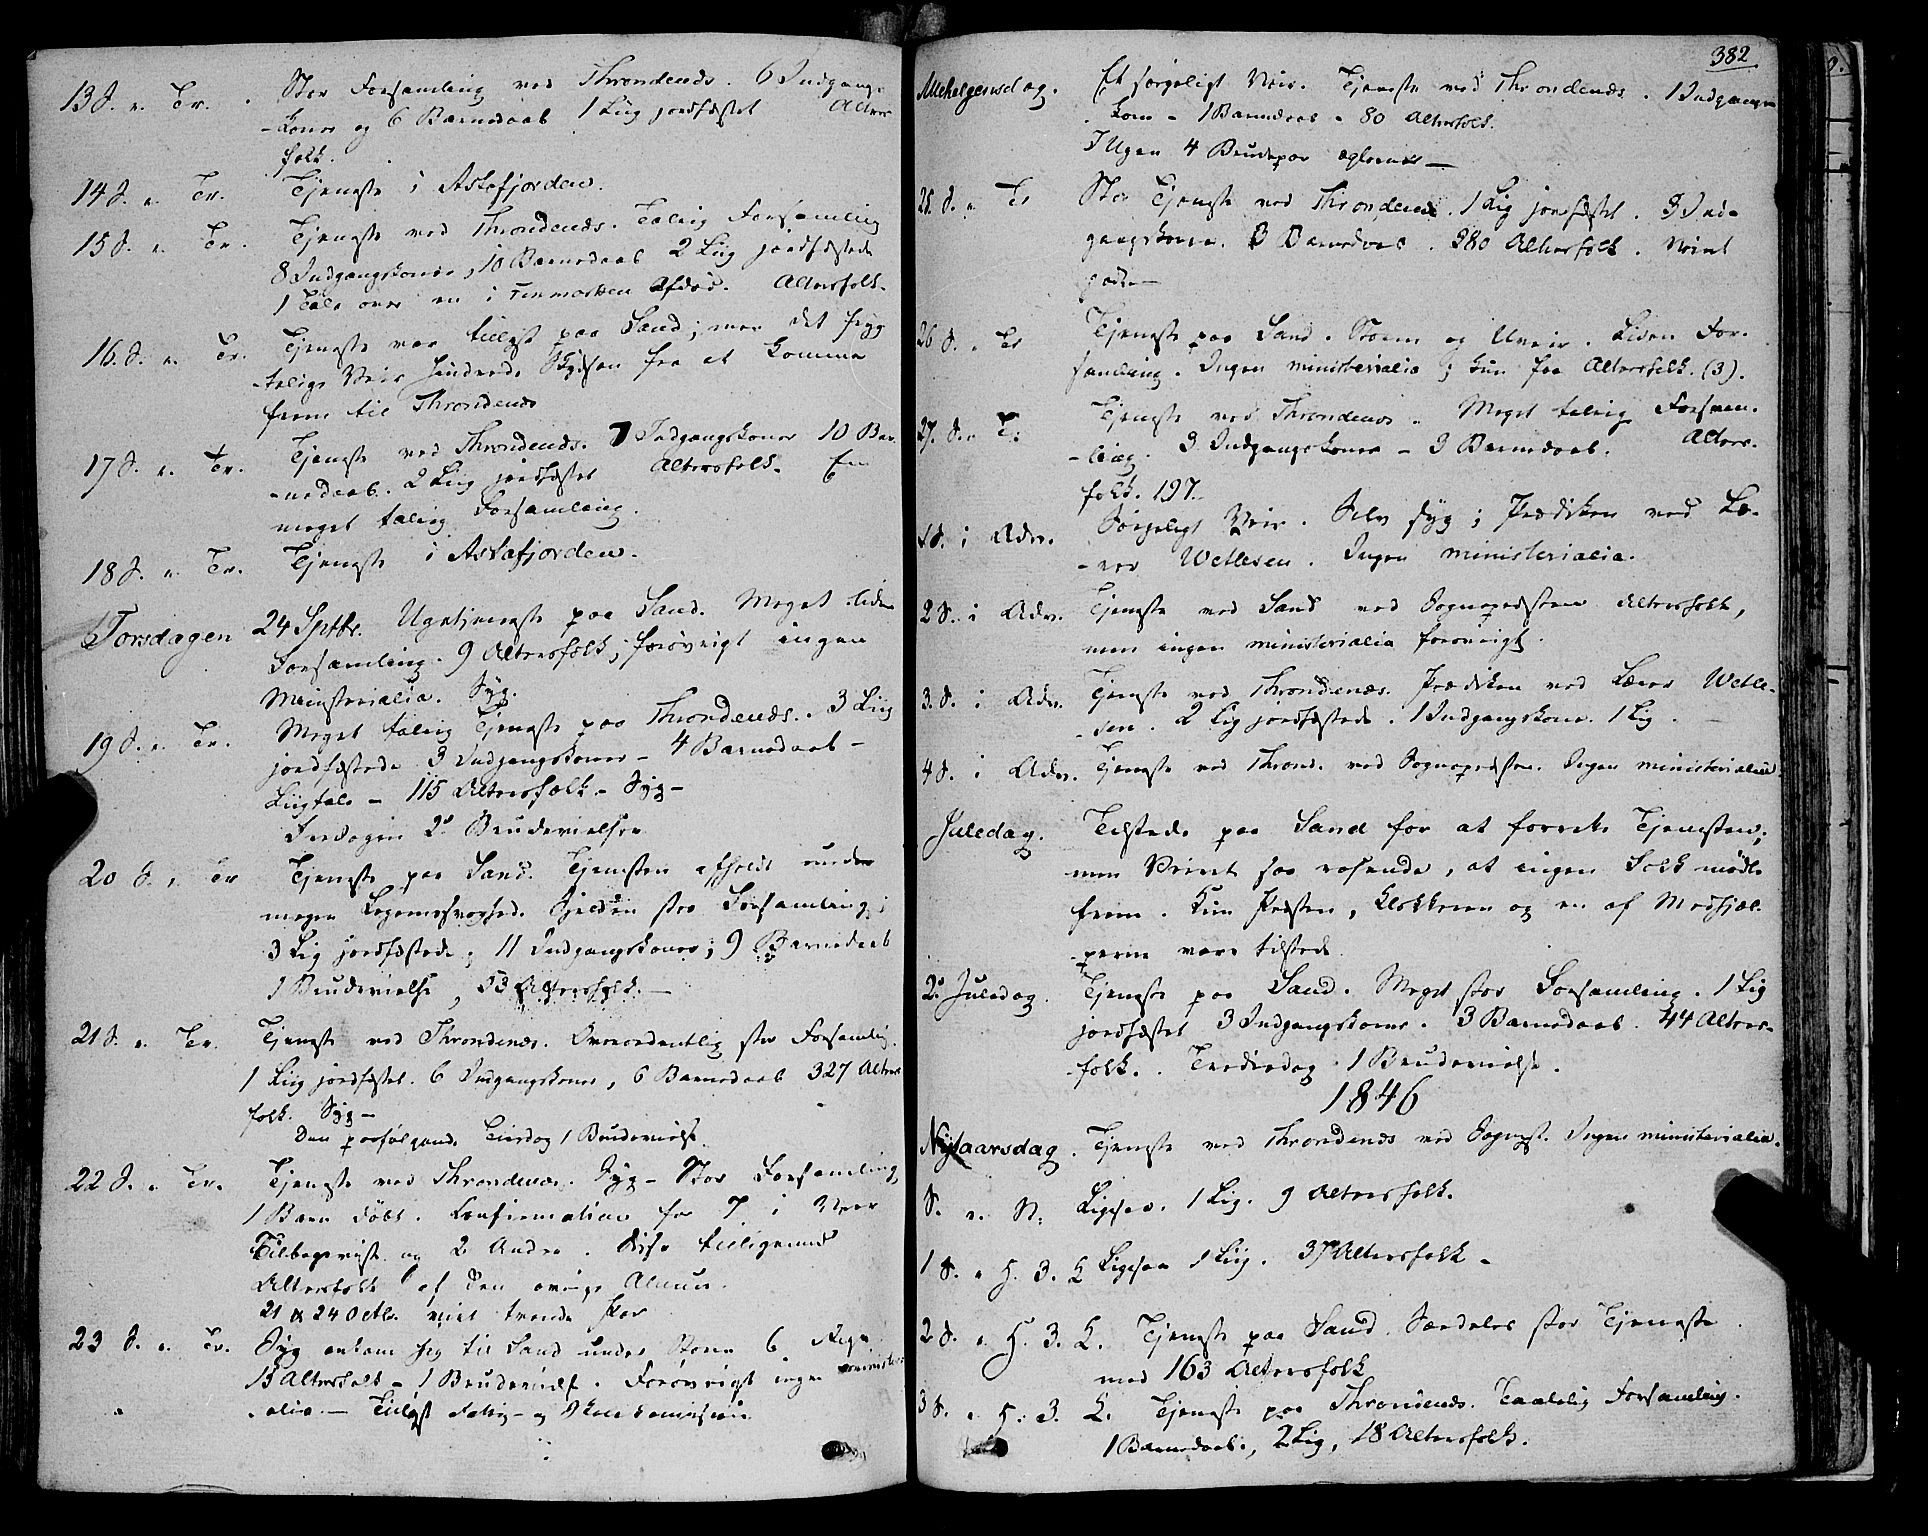 13 S. e. Tr. Stor Forsamling ved Throndenæs. 6 Indgangs-
-koner og 6 Barnedaab 1 Liig jordfæstet Alters
folk.
14 S. e. Tr. Tjeneste i Astafjorden.
15 S. e. Tr. Tjeneste ved Throndenæs. Talrig Forsamling
8 Indgangskoner, 10 Barnedaab 2 Liig jordfæstede
1 Tale over en i Finmarken Afdød. Altersfolk.
16. S. e. Tr. Tjeneste var tillyst paa Sand; men det
Veir hindrede Skydsen fra at komme
frem til Throndenæs
17 S. e. Tr. Tjeneste ved Throndenæs. 7 Indgangskoner 10 Bar
-nedaab. 2 Liig jordfæstet Altersfolk. En
meget talrig Forsamling.
18 S. e. Tr. Tjeneste i Astafjorden.
Torsdagen 24 Septbr. Ugetjeneste paa Sand. Meget liden
Forsamling. 9 Altersfolk; forøvrigt ingen
Ministerialia. Syg.
19 S. e. Tr. Meget talrig Tjeneste paa Throndenæs. 3 Liig
jordfæstede 3 Indgangskoner - 4 Barnedaab -
Liigtale - 115 Altersfolk - Syg -
2 Brudevielser
20 S. e. Tr Tjeneste paa Sand. Tjenesten afholdt under
megen Legemssvaghed. Sjelden stor Forsamling;
3 Lig jordfæstede; 11 Indgangskoner; 9 Barnedaab
1 Brudevielse, 53 Altersfolk. -
21 S. e. Tr. Tjeneste ved Throndenæs. Overordentlig stor Forsamling.
1 Liig jordfæstet. 6 Indgangskoner, 6 Barnedaab 327 Alters
folk. Syg -
Den paafølgende Tirsdag 1 Brudevielse.
22 S. e. Tr. Tjeneste ved Throndenæs. Syg - Stor Forsamling,
1 Barn døbt. Confirmation for 7 i Vaar
Tilbageviste og 2 Andre. Disse tilligemed
Altersfolk af den øvrige Almue.
21 & 24 Octbr. viet trende Par
23 S. e. Tr. Syg ankom jeg til Sand under Storm &
13 Altersfolk - 1 Brudevielse. Forøvrigt ingen minister
-alia. - Tillyst Fattig- og Skolekommission
382
Mickelgensdag. Et sørgeligt Veir. Tjeneste ved Throndenæs. 1 Indgangs
kone - 1 Barnedaab - 80 Altersfolk.
I Ugen 4 Brudepar
25. S. e. Tr Stor Tjeneste ved Throndenæs. 1 Lig jordfæstet. 3 Ind-
gangskoner. 3 Barnedaab. 380 Altersfolk. Veiret
godt -
26 S. e. Tr Tjeneste paa Sand. Storm og Uveir. Liden For-
samling. Ingen ministerialia; kun faa Altersfolk. (3).
27. S. e. Tr. Tjeneste ved Throndenæs. Meget talrig Forsam-
-ling. 3 Indgangskoner - 3 Barnedaab. Alters-
folk. 197.
1 S. i Adv. Sørgeligt Veir. Selv syg; Prædiken ved Læ-
-rer Wetlesen. Ingen ministerialia.
2 S. i Adv. Tjeneste ved Sand ved Sognepræsten Altersfolk,
men ingen ministerialia forøvrigt.
3. S. i Adv. Tjeneste ved Throndenæs. Prædiken ved Lærer Wetle-
-sen. 2 Lig jordfæstede. 1 Indgangskone. 1 Lig. -
4 S. i Adv. Tjeneste ved Thrond. ved Sognepræsten. Ingen ministerialia.
Juledag. Tilstede paa Sand for at forrette Tjenesten;
men Veiret saa rasende, at ingen Folk mødte
frem. Kun Præsten, Klokkeren og en af Medhjæl-
-perne vare tilstede
2. Juledag. Tjeneste paa Sand. Meget stor Forsamling. 1 Lig
jordfæstet 3 Indgangskoner. 3 Barnedaab. 44 Alters-
-folk. Tredjedag 1 Brudevielse.
1846
Nytaarsdag. Tjeneste ved Throndenæs ved Sognepr. Ingen ministerialia.
S. e. N: Ligesaa. 1 Lig. 9 Altersfolk.
1 S. e. H. 3. K Ligesaa 1 Liig. 37 Altersfolk -
2 S. e. H. 3. K. Tjeneste paa Sand. Særdeles stor Tjeneste
med 163 Altersfolk
3 S. e. H. 3. K. Tjeneste paa Throndenæs. Taalelig Forsamling.
1 Barnedaab, 2 Lig, 18 Altersfolk.